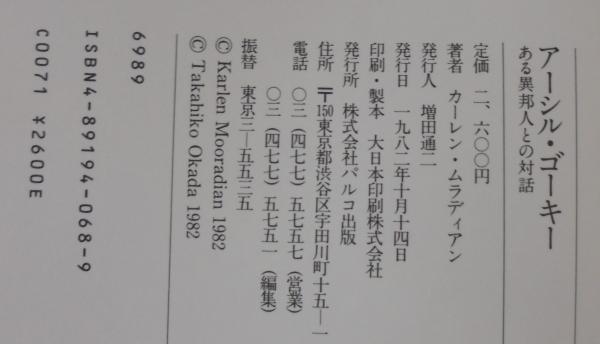 アーシル・ゴーキー
ある異邦人との対話
定価 二、六〇〇円
著者 カーレン・ムラディアン
発行人 増田通二
発行日 一九八二年十月十四日
印刷・製本 大日本印刷株式会社
発行所 株式会社パルコ出版
住所 〒150東京都渋谷区宇田川町十五―一
電話 〇三(四七七)五七五七(営業)
〇三(四七七)五七五一(編集)
振替 東京三―五五三五
© Karlen Mooradian 1982
© Takahiko Okada 1982
6989
ISBN4-89194-068-9
C0071 ¥2600E